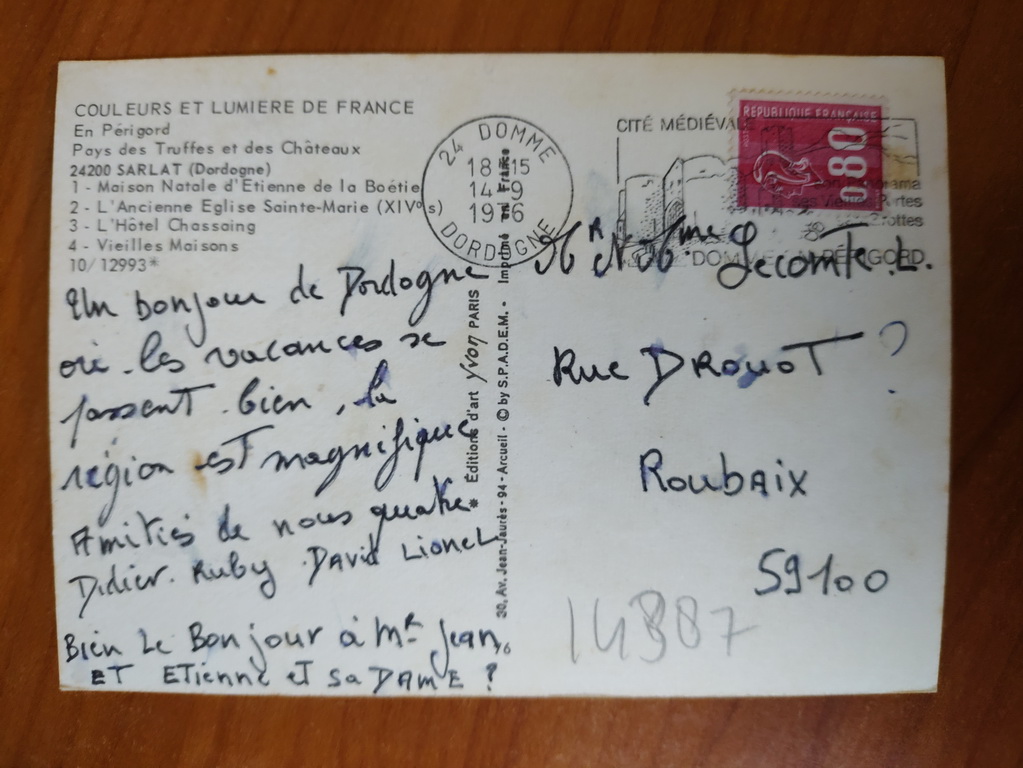 COULEURS ET LUMIERE DE FRANCE
En Périgord
Pays des Truffes et des Châteaux
24200 SARLAT (Dordogne)
1 - Maison Natale d'Etienne de la Boétie
2 - L'Ancienne Eglise Sainte-Marie (XIVe s)
3 - L'Hôtel Chassaing
4 - Vieilles Maisons
10/12993*
Un bonjour de Dordogne
où les vacances se
passent bien, la
région est magnifique
Amitiés de nous quatre
Didier. Ruby. David Lionel
Bien Le Bonjour à Mr Jean
ET ETienne et Sa DAME ?
* Éditions d'art Yvon PARIS
30, Av. Jean-Jaurès - 94 - Arcueil - © by S.P.A.D.E.M. - Imprimé en France
24 DOMME
18 H 15
14 - 9
1976
DORDOGNE
CITÉ MÉDIÉVALE
Panorama
Ses Vieilles Portes
Grottes
DOMME EN PÉRIGORD
RÉPUBLIQUE FRANÇAISE
0,80
Mr Mme Lecomte. L.
Rue DROUOT ?
Roubaix
59100
14387